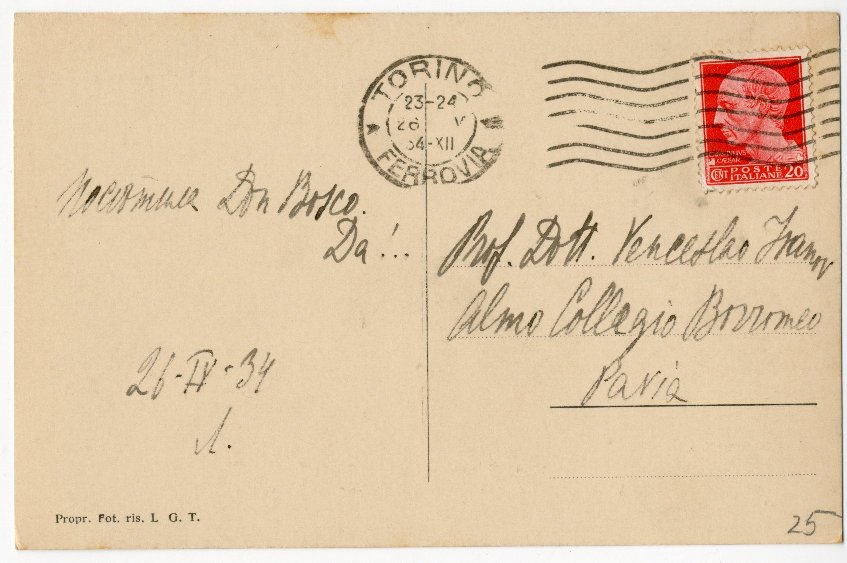 TORINO
23-24
26 V
34-XII
FERROVIA
CAESAR
CENT POSTE ITALIANE 20
Don Bosco.
Da!..
Prof. Dott. Venceslao Ivanov
Almo Collegio Borromeo
Pavia
26-IV-34
Л.
Propr. Fot. ris. L G. T.
25